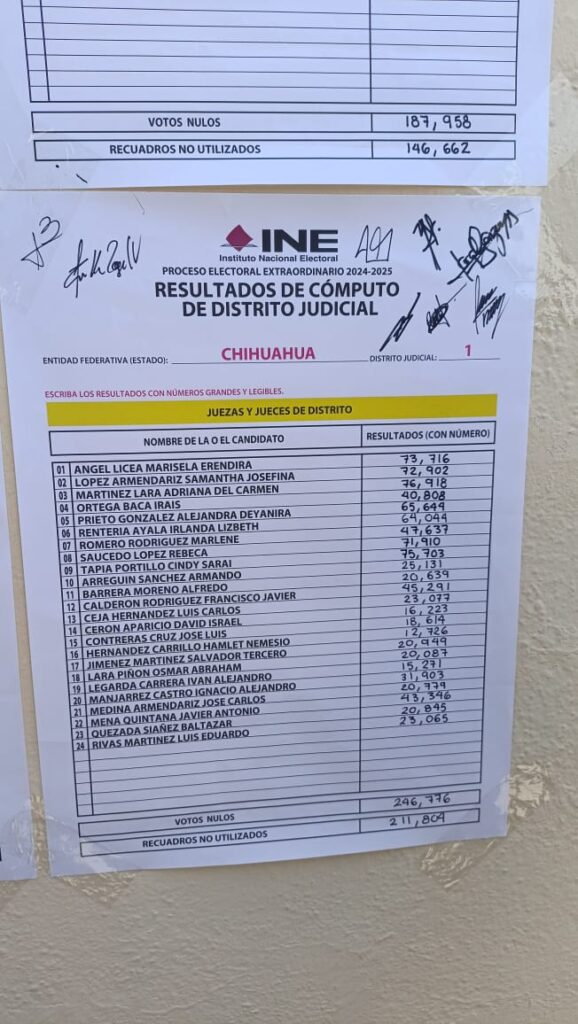 VOTOS NULOS 187,958
RECUADROS NO UTILIZADOS 146,662
INE
Instituto Nacional Electoral
PROCESO ELECTORAL EXTRAORDINARIO 2024-2025
RESULTADOS DE CÓMPUTO
DE DISTRITO JUDICIAL
ENTIDAD FEDERATIVA (ESTADO): CHIHUAHUA DISTRITO JUDICIAL: 1
ESCRIBA LOS RESULTADOS CON NÚMEROS GRANDES Y LEGIBLES.
JUEZAS Y JUECES DE DISTRITO
NOMBRE DE LA O EL CANDIDATO RESULTADOS (CON NÚMERO)
01 ANGEL LICEA MARISELA ERENDIRA 73,716
02 LOPEZ ARMENDARIZ SAMANTHA JOSEFINA 72,902
03 MARTINEZ LARA ADRIANA DEL CARMEN 76,918
04 ORTEGA BACA IRAIS 40,808
05 PRIETO GONZALEZ ALEJANDRA DEYANIRA 65,644
06 RENTERIA AYALA IRLANDA LIZBETH 64,044
07 ROMERO RODRIGUEZ MARLENE 47,637
08 SAUCEDO LOPEZ REBECA 71,910
09 TAPIA PORTILLO CINDY SARAI 75,703
10 ARREGUIN SANCHEZ ARMANDO 25,131
11 BARRERA MORENO ALFREDO 20,639
12 CALDERON RODRIGUEZ FRANCISCO JAVIER 45,291
13 CEJA HERNANDEZ LUIS CARLOS 23,077
14 CERON APARICIO DAVID ISRAEL 16,223
15 CONTRERAS CRUZ JOSE LUIS 18,614
16 HERNANDEZ CARRILLO HAMLET NEMESIO 12,726
17 JIMENEZ MARTINEZ SALVADOR TERCERO 20,949
18 LARA PIÑON OSMAR ABRAHAM 20,087
19 LEGARDA CARRERA IVAN ALEJANDRO 15,271
20 MANJARREZ CASTRO IGNACIO ALEJANDRO 31,903
21 MEDINA ARMENDARIZ JOSE CARLOS 20,779
22 MENA QUINTANA JAVIER ANTONIO 43,346
23 QUEZADA SIAÑEZ BALTAZAR 20,845
24 RIVAS MARTINEZ LUIS EDUARDO 23,065
VOTOS NULOS 246,776
RECUADROS NO UTILIZADOS 211,804